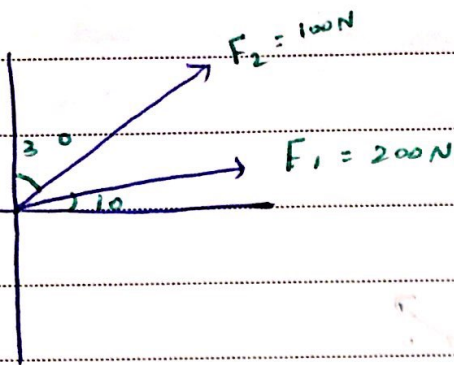 F₂ = 100N
30
F₁ = 200N
10